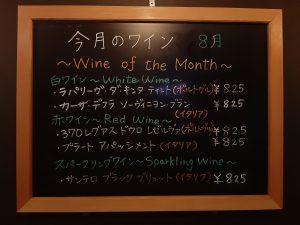 今月のワイン 8月
～Wine of the Month～
白ワイン～White Wine～
・ラパリーヴ・ダ・キンタ (ポルトガル) ¥825
・カーザ・デフラ ソーヴィニヨン・ブラン ¥825
(イタリア)
赤ワイン～Red Wine～
・370レグアス ドウロ レゼルヴァ(ポルトガル) ¥825
・プラート アパッシメント (イタリア) ¥825
スパークリングワイン～Sparkling Wine～
・サンテロ ブラック ブリュット (イタリア) ¥825